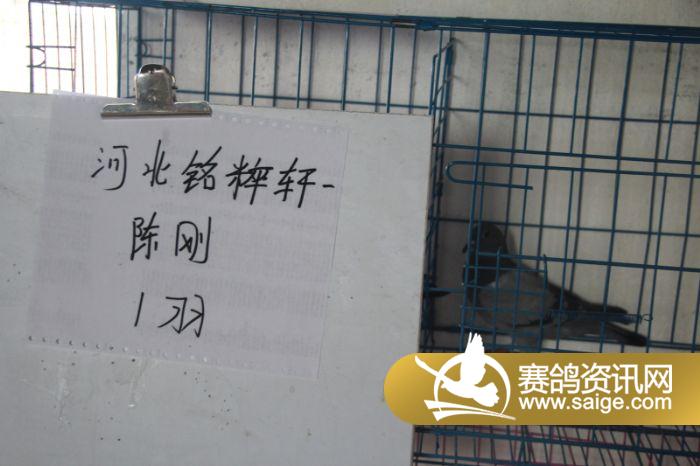 河北铭粹轩-
陈刚
1羽
赛鸽资讯网
www.saige.com